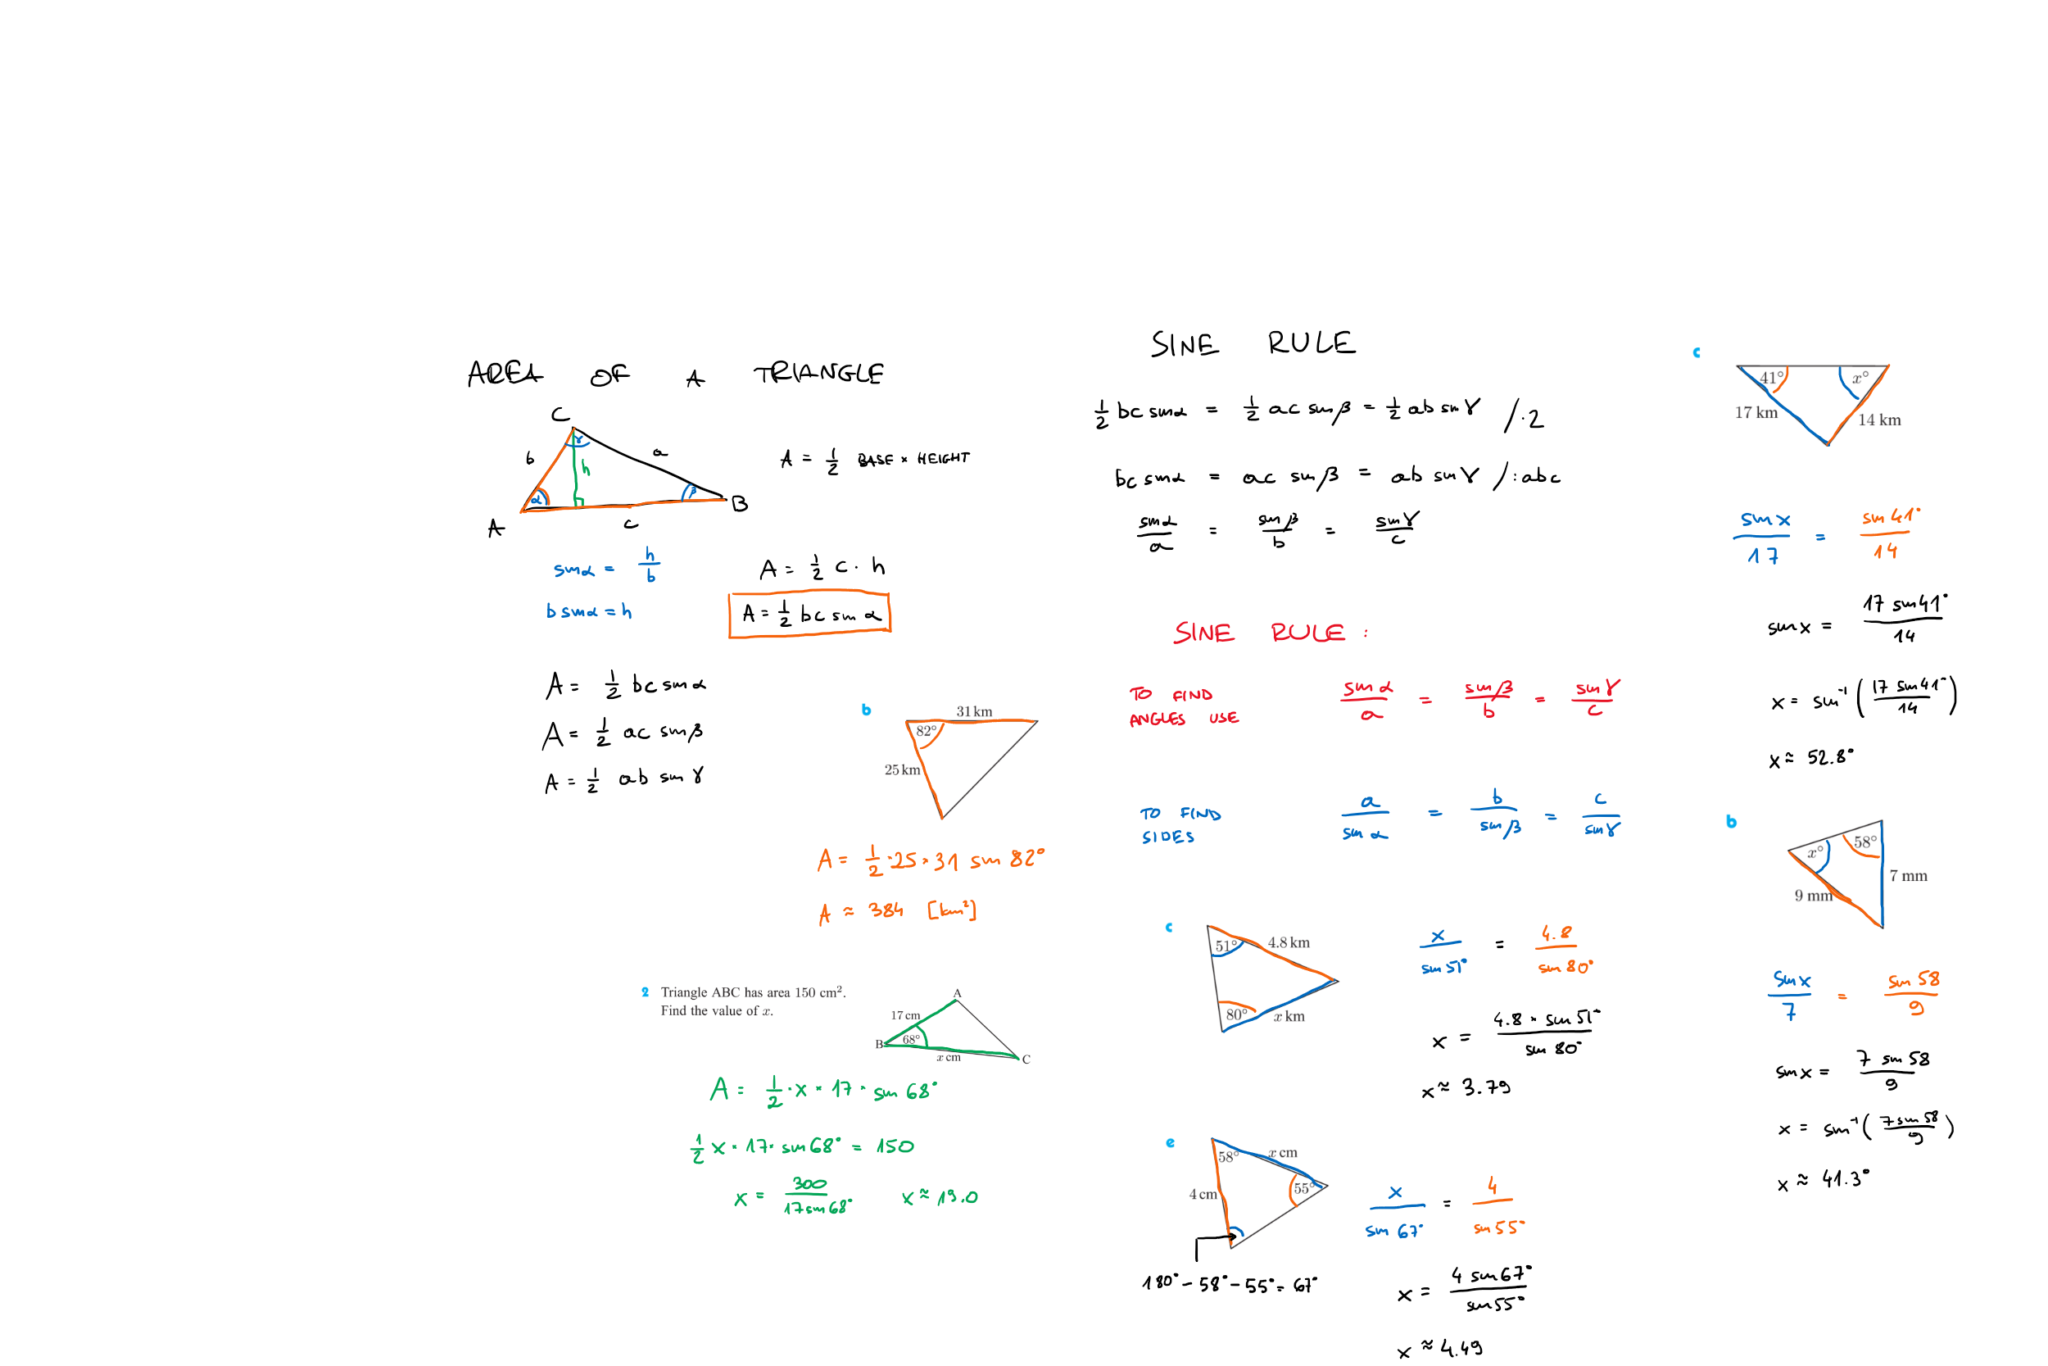 AREA OF A TRIANGLE
C
b
γ
a
h
α
β
A
c
B
A = 1/2 BASE × HEIGHT
sinα = h/b
b sinα = h
A = 1/2 c · h
A = 1/2 bc sin α
A = 1/2 bc sinα
A = 1/2 ac sinβ
A = 1/2 ab sin γ
b
31 km
82°
25 km
A = 1/2 · 25 · 31 sin 82°
A ≈ 384 [km²]
2 Triangle ABC has area 150 cm².
Find the value of x.
A
17 cm
B
68°
x cm
C
A = 1/2 · x · 17 · sin 68°
1/2 x · 17 · sin 68° = 150
x = 300/17 sin 68° x ≈ 19.0
SINE RULE
1/2 bc sinα = 1/2 ac sin β = 1/2 ab sin γ /·2
bc sinα = ac sin β = ab sin γ /:abc
sinα/a = sin β/b = sin γ/c
SINE RULE :
TO FIND
ANGLES USE
sin α/a = sin β/b = sin γ/c
TO FIND
SIDES
a/sin α = b/sin β = c/sin γ
c
51°
4.8 km
80°
x km
x/sin 51° = 4.8/sin 80°
x = 4.8 · sin 51°/sin 80°
x ≈ 3.79
e
58°
x cm
4 cm
55°
180° - 58° - 55° = 67°
x/sin 67° = 4/sin 55°
x = 4 sin 67°/sin 55°
x ≈ 4.49
c
41°
x°
17 km
14 km
sin x/17 = sin 41°/14
sin x = 17 sin 41°/14
x = sin⁻¹ (17 sin 41°/14)
x ≈ 52.8°
b
x°
58°
7 mm
9 mm
sin x/7 = sin 58/9
sin x = 7 sin 58/9
x = sin⁻¹ (7 sin 58/9)
x ≈ 41.3°